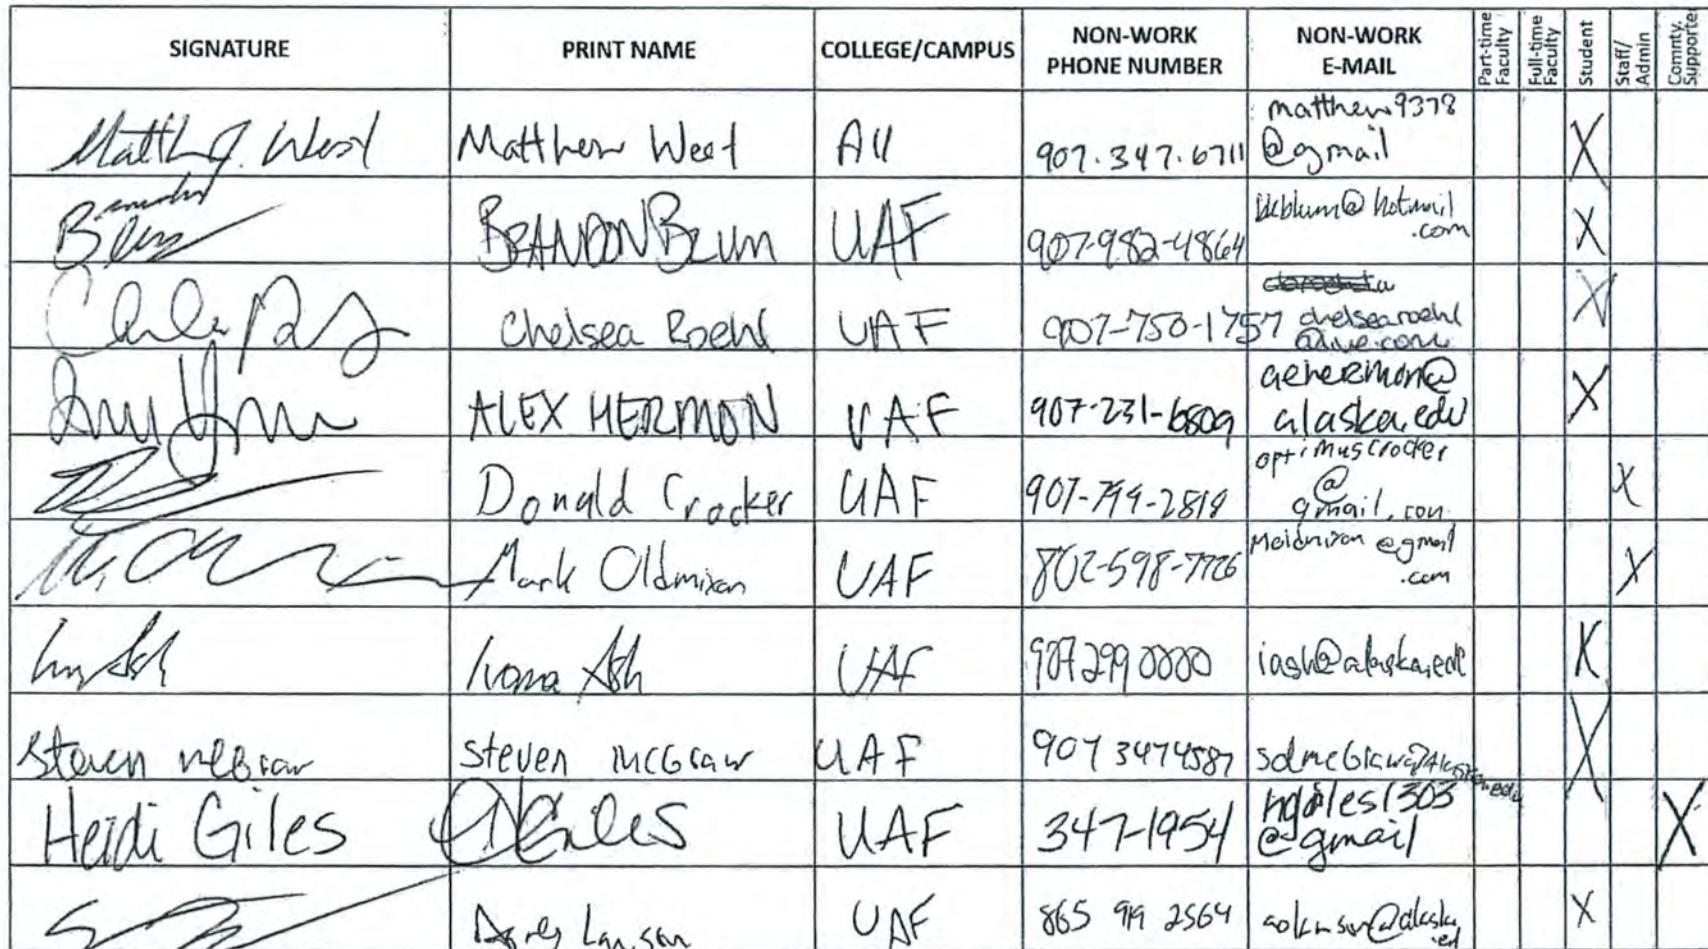 SIGNATURE PRINT NAME COLLEGE/CAMPUS NON-WORK PHONE NUMBER NON-WORK E-MAIL Part-time Faculty Full-time Faculty Student Staff/Admin Comnty. Supporter
Matth J. West Matthew West All 907.347.6711 matthew9378@gmail X
BRANDON BLUM UAF 907-982-4864 @hotmail.com X
Chelsea Roehl UAF 907-750-1757 chelsearoehl@live.com X
ALEX HERMON UAF 907-231-6809 aehermon@alaska.edu X
Donald Crocker UAF optimuscrocker@gmail.com X
Mark Oldmixon UAF 802-598-7726 @gmail.com X
Ivona Ash UAF 907 299 0000 iash@alaska.edu X
Steven McGraw steven McGraw UAF 907 3474587 X
Heidi Giles Giles UAF 347-1954 @gmail X
UAF 865 919 2564 X